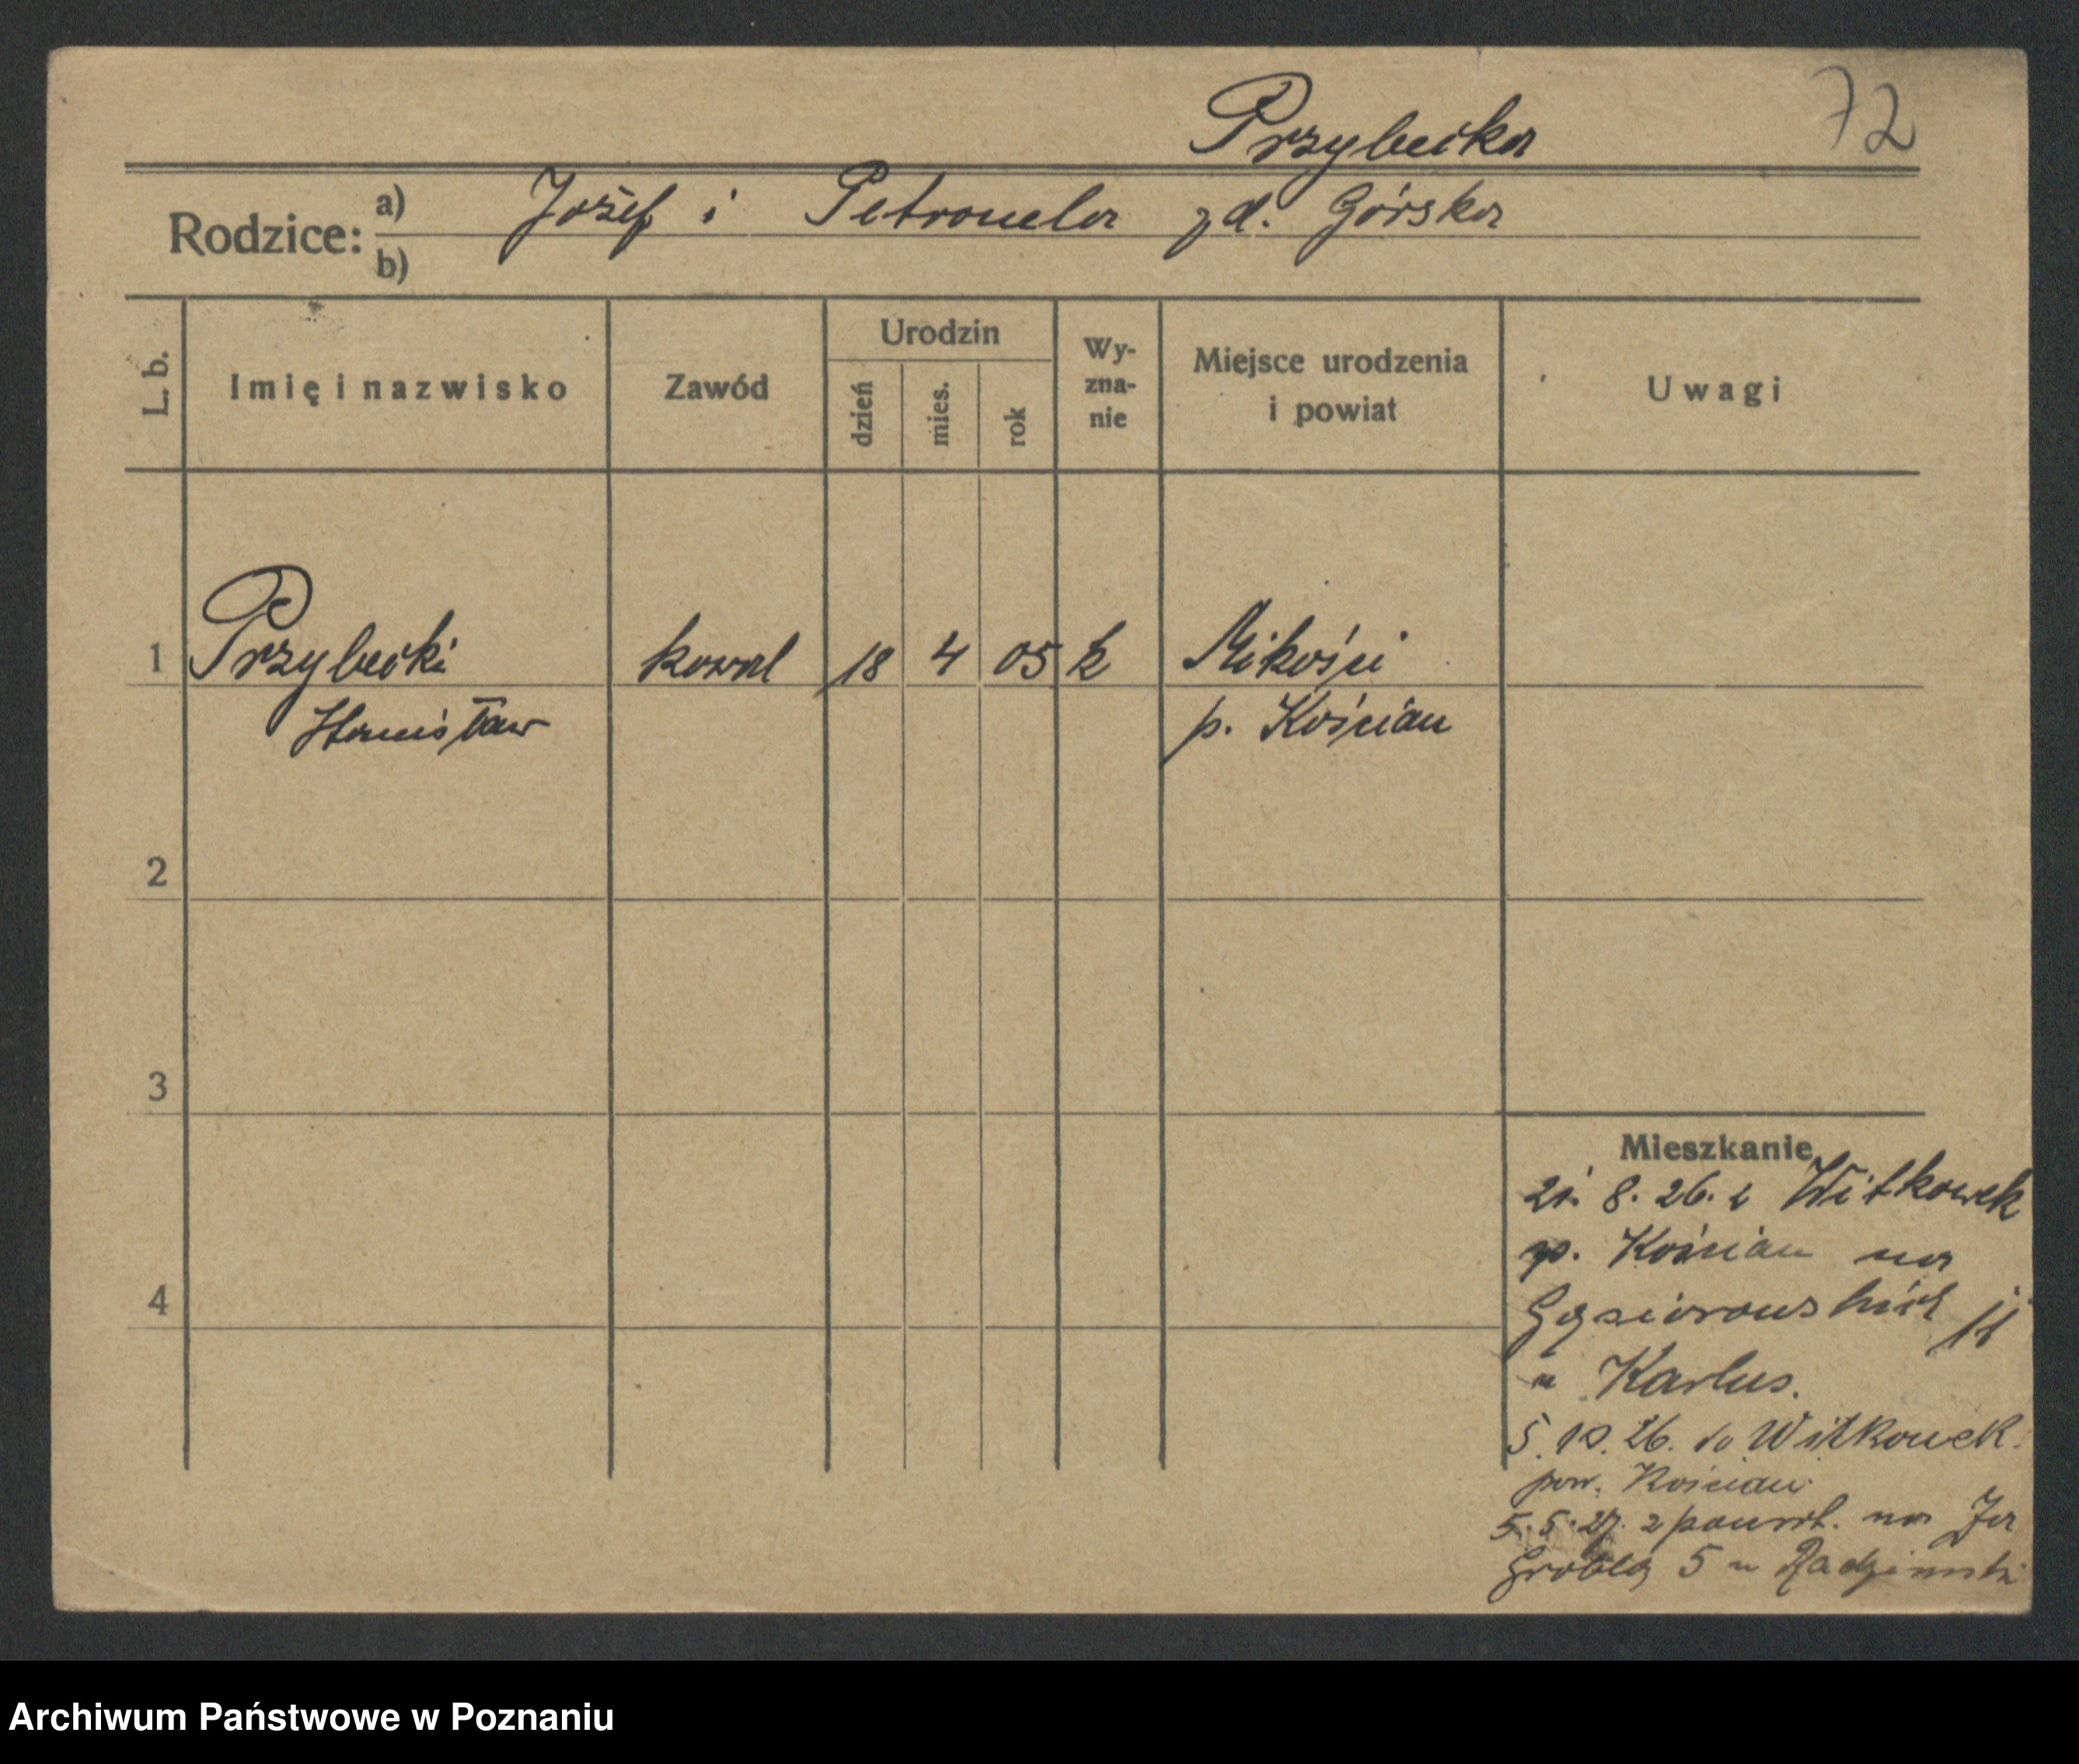 72
Przybecka
Rodzice: a) Józef i Petronela zd. Górska
b)
L. b.
Imię i nazwisko
Zawód
Urodzin
dzień
mies.
rok
Wy-
zna-
nie
Miejsce urodzenia
i powiat
Uwagi
1 Przybecki kowal 18 4 05 k Mikości
Stanisław p. Kościan
2
3
4
Mieszkanie
21. 8. 26. z Witkowek
p. Kościan na
Gąsiorowskich
u Karlus.
5. 10. 26. do Witkowek.
pow. Kościan
5. 5. 27. z powrot. na Za
Groblą 5 u Radzimski
Archiwum Państwowe w Poznaniu